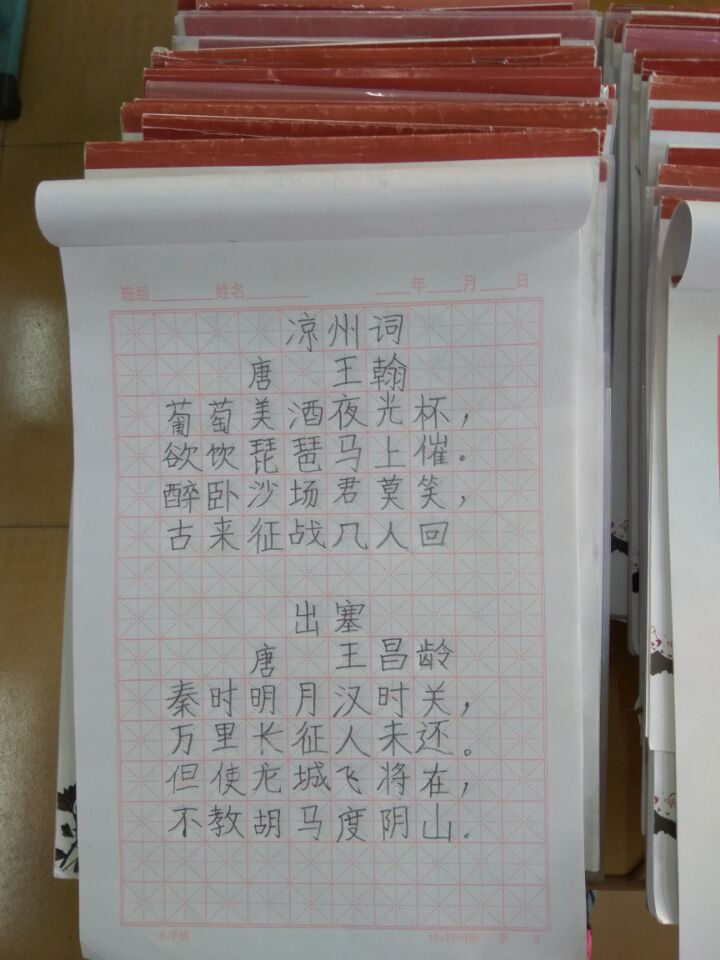 班级 姓名 年 月 日
凉州词
唐 王翰
葡萄美酒夜光杯，
欲饮琵琶马上催.
醉卧沙场君莫笑，
古来征战几人回
出塞
唐 王昌龄
秦时明月汉时关，
万里长征人未还。
但使龙城飞将在，
不教胡马度阴山.
米字格 10x15=150 第 页